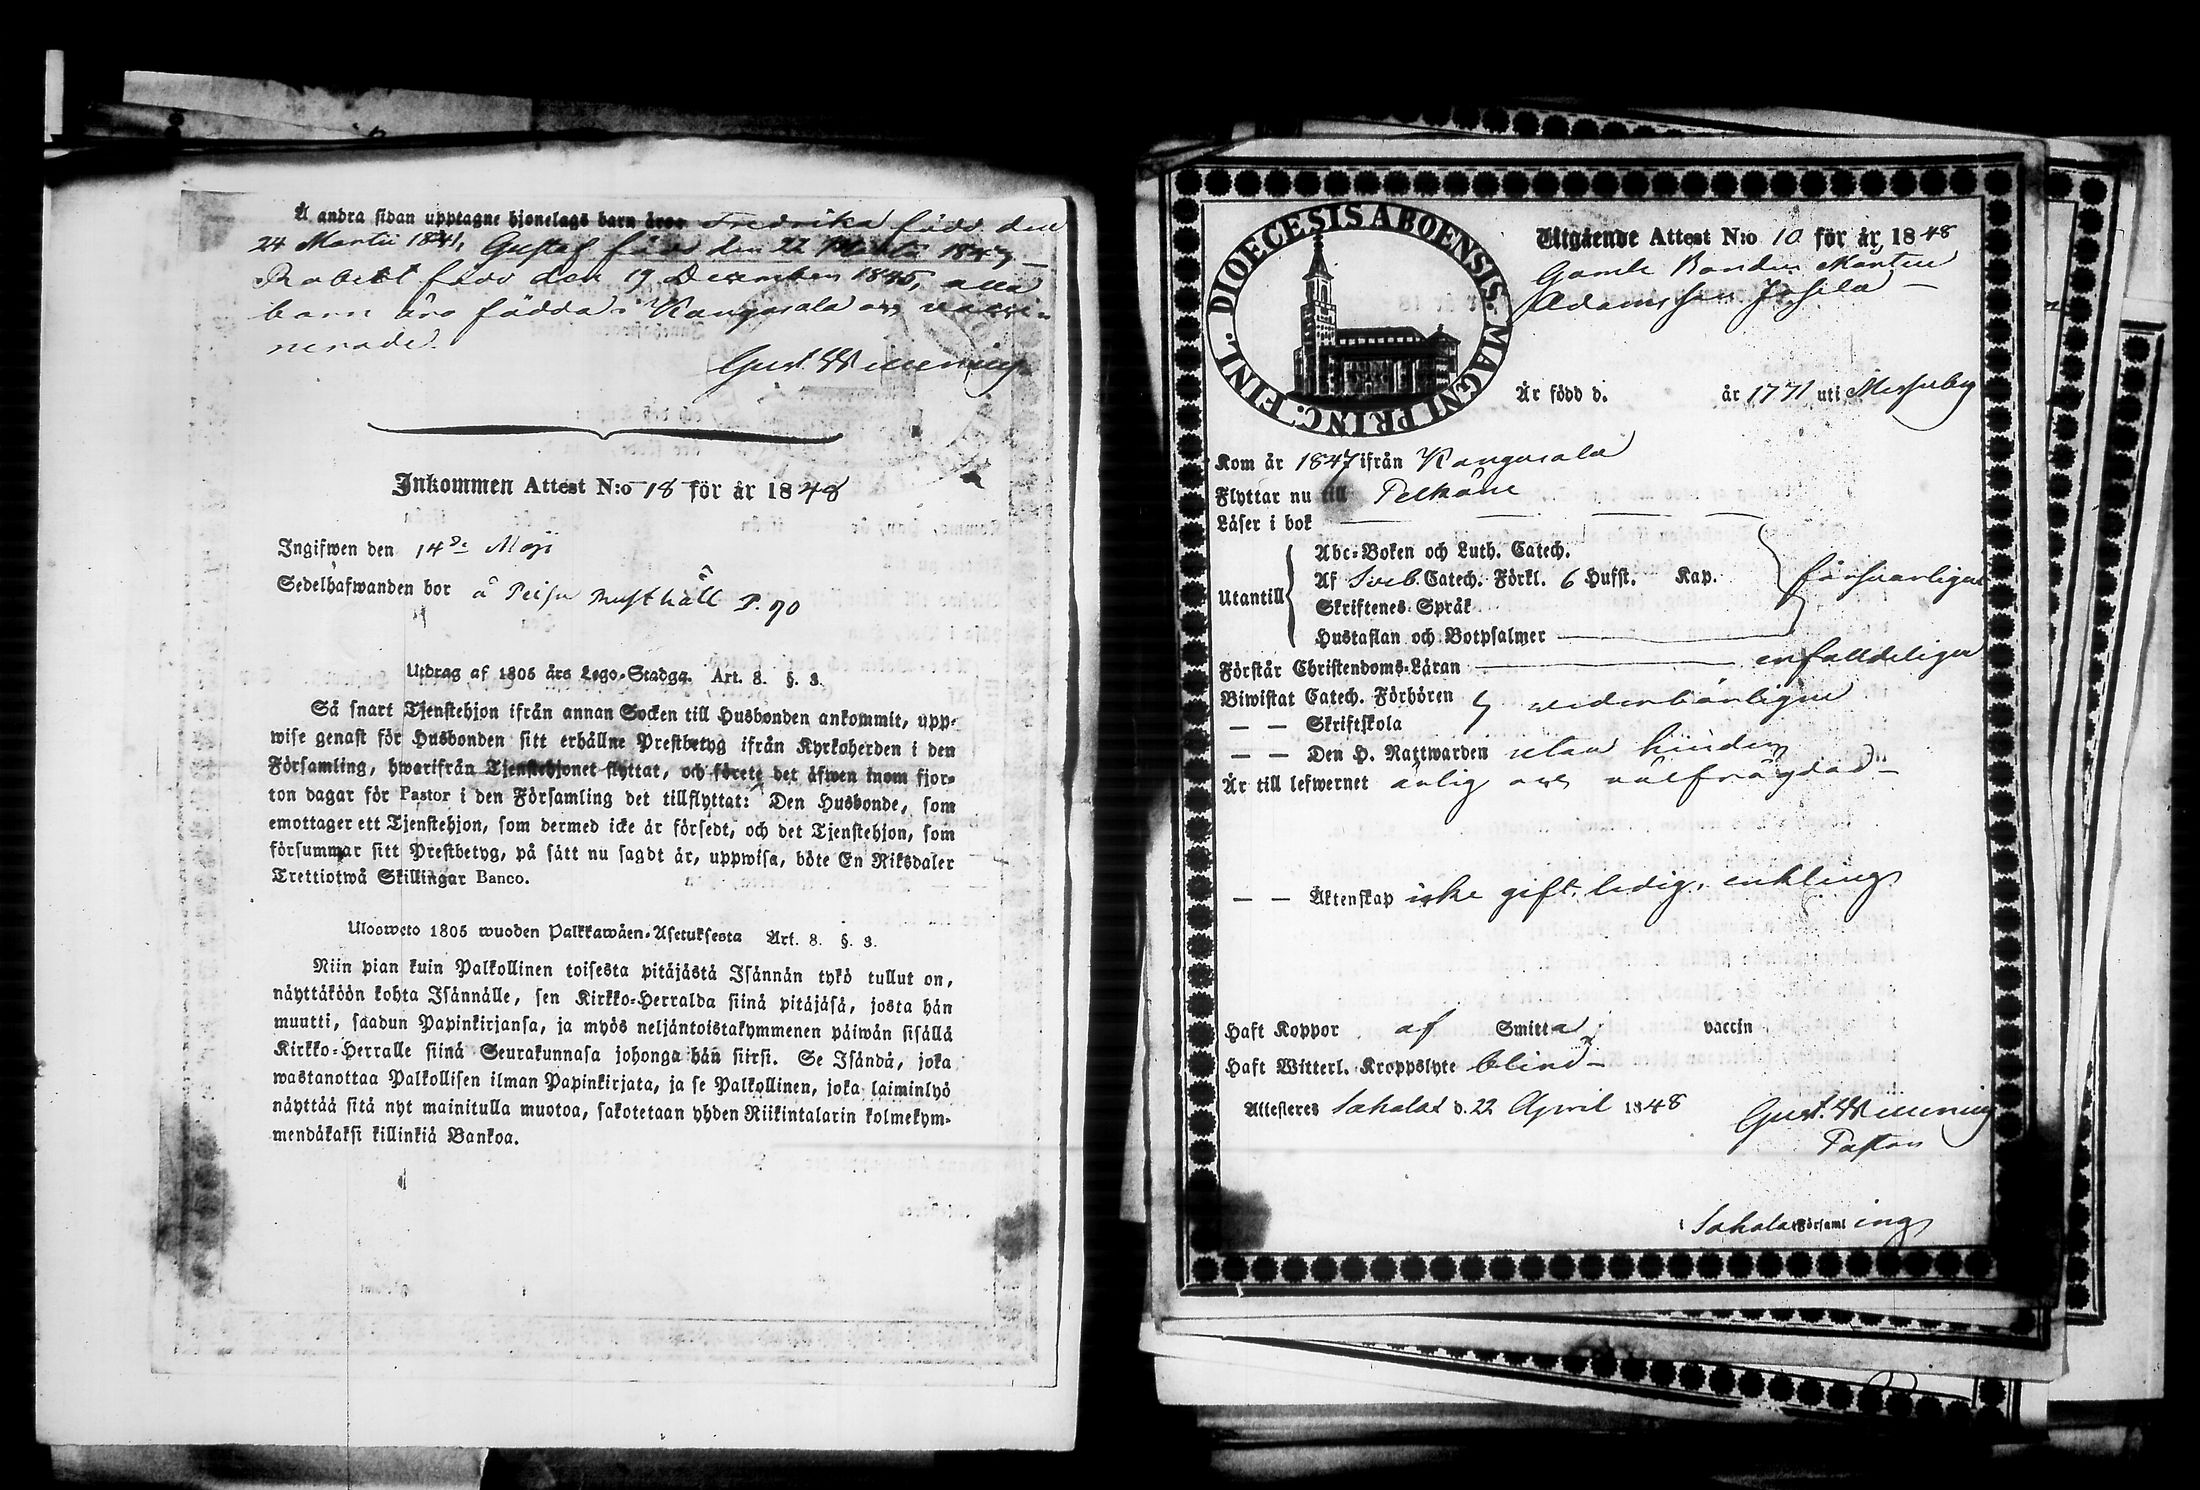 Å andra sidan upptagne hjonelags barn äro: Fredrika född den
24 Martii 1841, Gustaf född den 22 Martii 1843 —
Robert född den 19 December 1845, alla
barn äro födda i Kangasala och vacci-
nerade.
Gust. Wemming
Inkommen Attest N:o 18 för år 1848
Ingifwen den 14de Maji
Sedelhafwanden bor å Peisu Rusthåll P. 90
Utdrag af 1805 års Lego-Stadga. Art. 8. §. 3.
Så snart Tjenstehjon ifrån annan Socken till Husbonden ankommit, upp-
wise genast för Husbonden sitt erhållne Prestbetyg ifrån Kyrkoherden i den
Församling, hwarifrån Tjenstehjonet flyttat, och förete det äfwen inom fjor-
ton dagar för Pastor i den Församling det tillflyttat: Den Husbonde, som
emottager ett Tjenstehjon, som dermed icke är försedt, och det Tjenstehjon, som
försummar sitt Prestbetyg, på sätt nu sagdt är, uppwisa, böte En Riksdaler
Trettiotwå Skillingar Banco.
Ulosweto 1805 wuoden Palkkawäen-Asetuksesta Art. 8. §. 3.
Niin pian kuin Palkollinen toisesta pitäjästä Isännän tykö tullut on,
näyttäköön kohta Isännälle, sen Kirkko-Herralda siinä pitäjäsä, josta hän
muutti, saadun Papinkirjansa, ja myös neljäntoistakymmenen päiwän sisällä
Kirkko-Herralle siinä Seurakunnasa johonga hän siirsi. Se Isändä, joka
wastanottaa Palkollisen ilman Papinkirjata, ja se Palkollinen, joka laiminlyö
näyttää sitä nyt mainitulla muotoa, sakotetaan yhden Riikintalarin kolmekym-
mendäkaksi killinkiä Bankoa.
DIOECESIS ABOENSIS. MAGNI PRINC: FINL.
Utgående Attest N:o 10 för år 1848
Gamle Bonden Mårten
Adamsson Jussila —
Är född d. år 1771 uti Messuby
Kom år 1847 ifrån Kangasala
Flyttar nu till Pelkäne
Läser i bok
Utantill
Abc-Boken och Luth. Catech.
Af Sveb. Catech. Förkl. 6 Hufst. Kap. försvarligen
Skriftenes Språk
Hustaflan och Botpsalmer
Förstår Christendoms-Läran enfalldeligen
Biwistat Catech. Förhören wederbörligen
— — Skriftskola
— — Den H. Nattwarden utan hinder
Är till lefwernet ärlig och välfrägdad —
— — Äktenskap icke gift, ledig, enkling
Haft Koppor af Smitta vaccin
Haft Witterl. Kroppslyte blind —
Attesteres Sahalax d. 22 April 1848
Gust. Wemming
Pastor
i Sahalax Församling